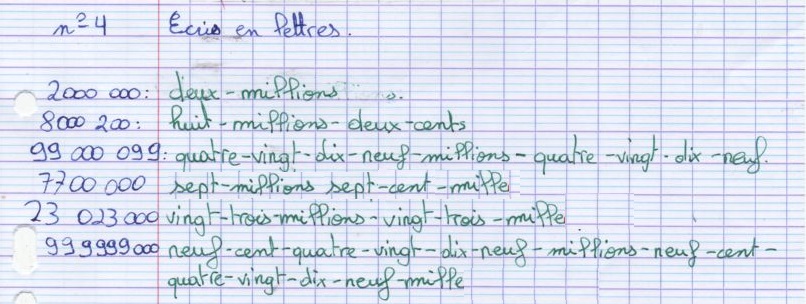 n°4 Écris en lettres.
2000 000: deux-millions
8000 200: huit-millions-deux-cents
99 000 099: quatre-vingt-dix-neuf-millions-quatre-vingt-dix-neuf.
7700 000 sept-millions sept-cent-mille
23 023 000 vingt-trois-millions-vingt-trois-mille
999999000 neuf-cent-quatre-vingt-dix-neuf-millions-neuf-cent-
quatre-vingt-dix-neuf-mille